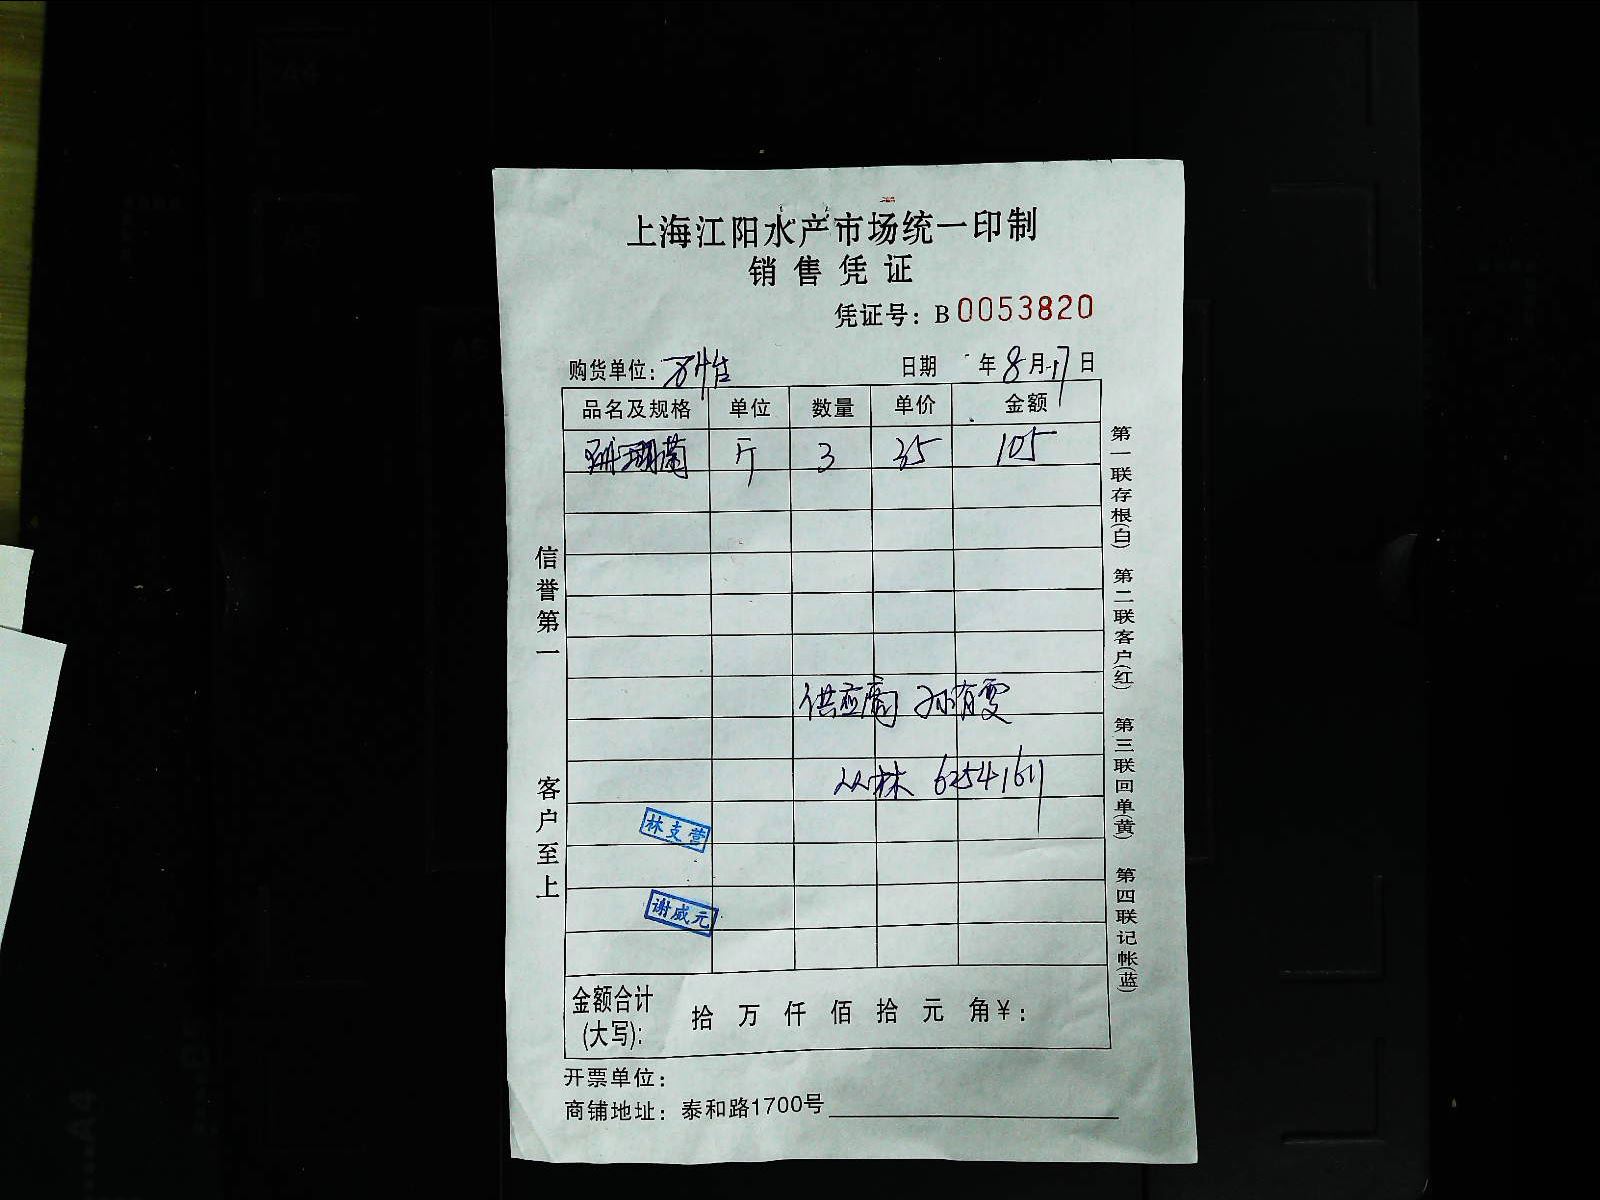 上海江阳水产市场统一印制
销售凭证
凭证号：B0053820
购货单位： 日期 年8月17日
品名及规格 单位 数量 单价 金额
珊瑚菌 斤 3 35 105
供应商 孙有雯
从林 62541611
林支营
谢威元
金额合计(大写): 拾 万 仟 佰 拾 元 角￥:
开票单位：
商铺地址：泰和路1700号
信誉第一 客户至上
第一联存根(白) 第二联客户(红) 第三联回单(黄) 第四联记帐(蓝)